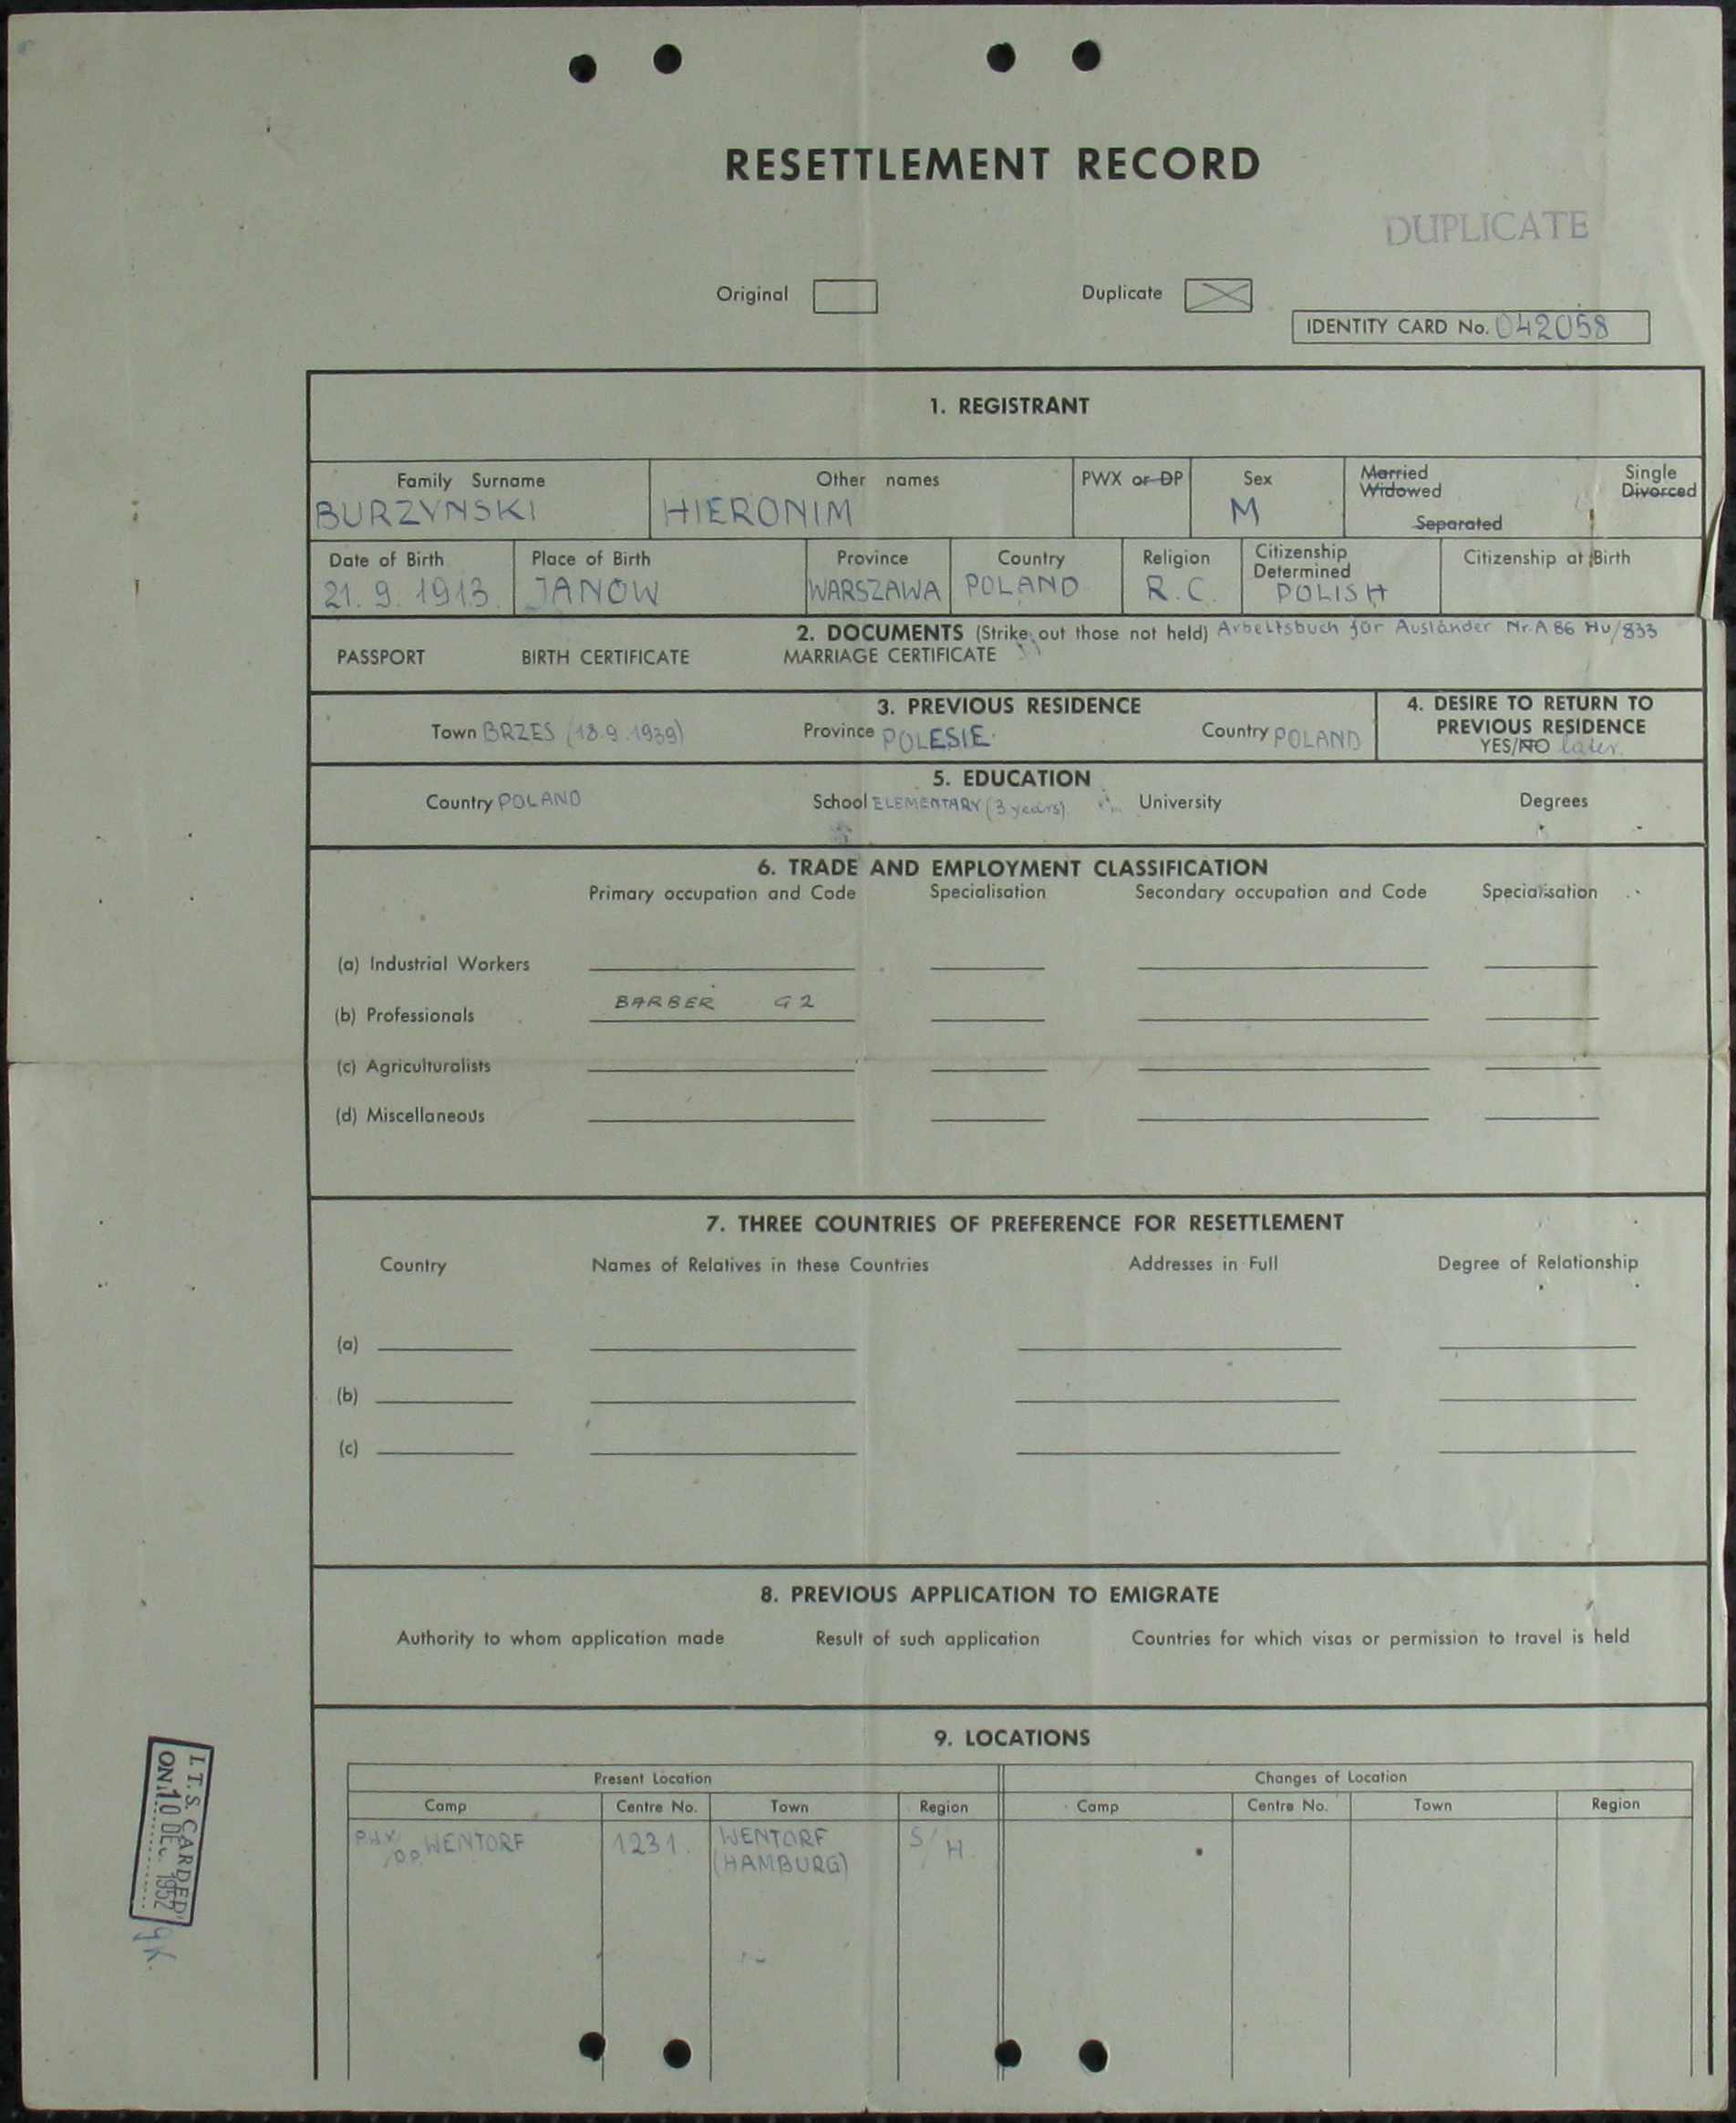 RESETTLEMENT RECORD
DUPLICATE
Original Duplicate
IDENTITY CARD No. 042058
1. REGISTRANT
Family Surname Other names PWX or DP Sex Married Single
Widowed Divorced
BURZYNSKI HIERONIM M Separated
Date of Birth Place of Birth Province Country Religion Citizenship Determined Citizenship at Birth
21. 9. 1913. JANOW WARSZAWA POLAND R.C. POLISH
2. DOCUMENTS (Strike out those not held) Arbeitsbuch für Ausländer Nr. A 86 Hu/833
PASSPORT BIRTH CERTIFICATE MARRIAGE CERTIFICATE
3. PREVIOUS RESIDENCE
Town BRZES (18.9.1939) Province POLESIE. Country POLAND
4. DESIRE TO RETURN TO
PREVIOUS RESIDENCE
YES/NO later.
5. EDUCATION
Country POLAND School ELEMENTARY (3 years) University Degrees
6. TRADE AND EMPLOYMENT CLASSIFICATION
Primary occupation and Code Specialisation Secondary occupation and Code Specialisation
(a) Industrial Workers
(b) Professionals BARBER G2
(c) Agriculturalists
(d) Miscellaneous
7. THREE COUNTRIES OF PREFERENCE FOR RESETTLEMENT
Country Names of Relatives in these Countries Addresses in Full Degree of Relationship
(a)
(b)
(c)
8. PREVIOUS APPLICATION TO EMIGRATE
Authority to whom application made Result of such application Countries for which visas or permission to travel is held
9. LOCATIONS
Present Location Changes of Location
Camp Centre No. Town Region Camp Centre No. Town Region
PWX/DP. WENTORF 1231. WENTORF S/H.
(HAMBURG)
I.T.S. CARDED
ON 10 DEC. 1952